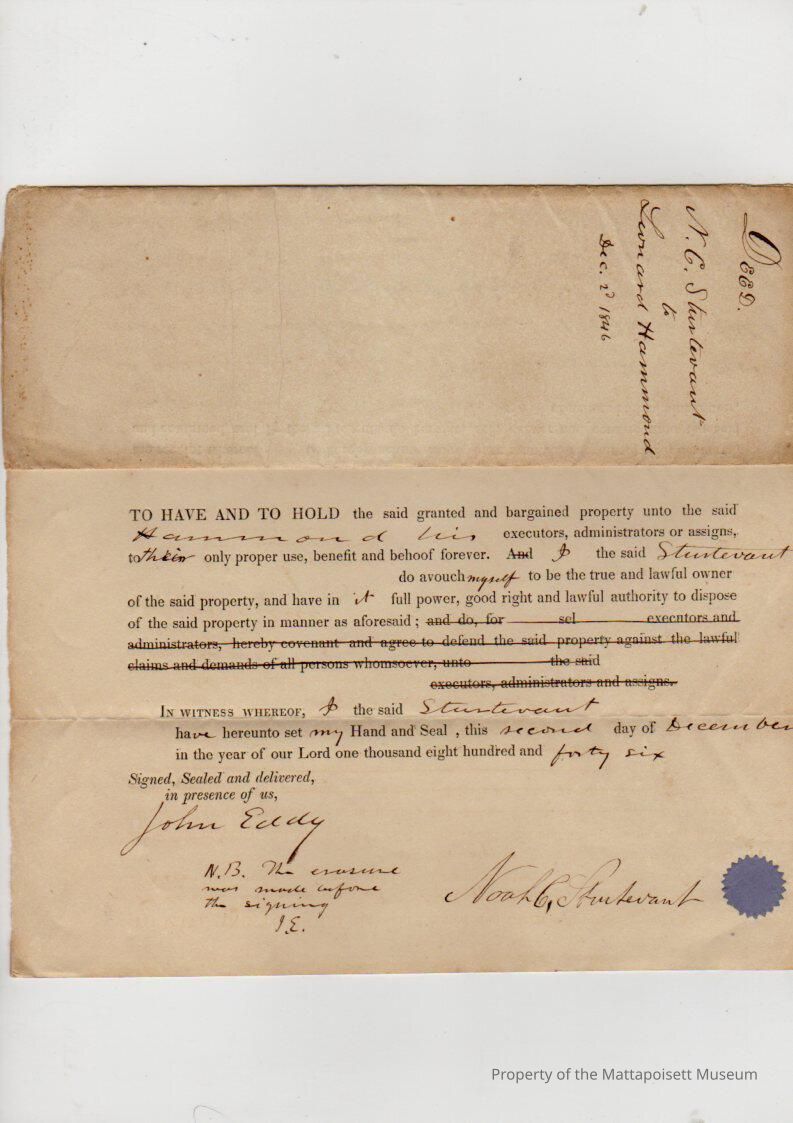 DEED.
N. C. Sturtevant
to
Leonard Hammond
Dec. 2d 1846
TO HAVE AND TO HOLD the said granted and bargained property unto the said
Hammond his executors, administrators or assigns,
to their only proper use, benefit and behoof forever. And I the said Sturtevant
do avouch myself to be the true and lawful owner
of the said property, and have in it full power, good right and lawful authority to dispose
of the said property in manner as aforesaid ; and do, for sel executors and
administrators, hereby covenant and agree to defend the said property against the lawful
claims and demands of all persons whomsoever, unto the said
executors, administrators and assigns.
IN WITNESS WHEREOF, I the said Sturtevant
have hereunto set my Hand and Seal , this second day of December
in the year of our Lord one thousand eight hundred and forty six
Signed, Sealed and delivered,
in presence of us,
John Eddy
N.B. The erasure
was made before
the signing
J.E.
Noah C. Sturtevant
Property of the Mattapoisett Museum